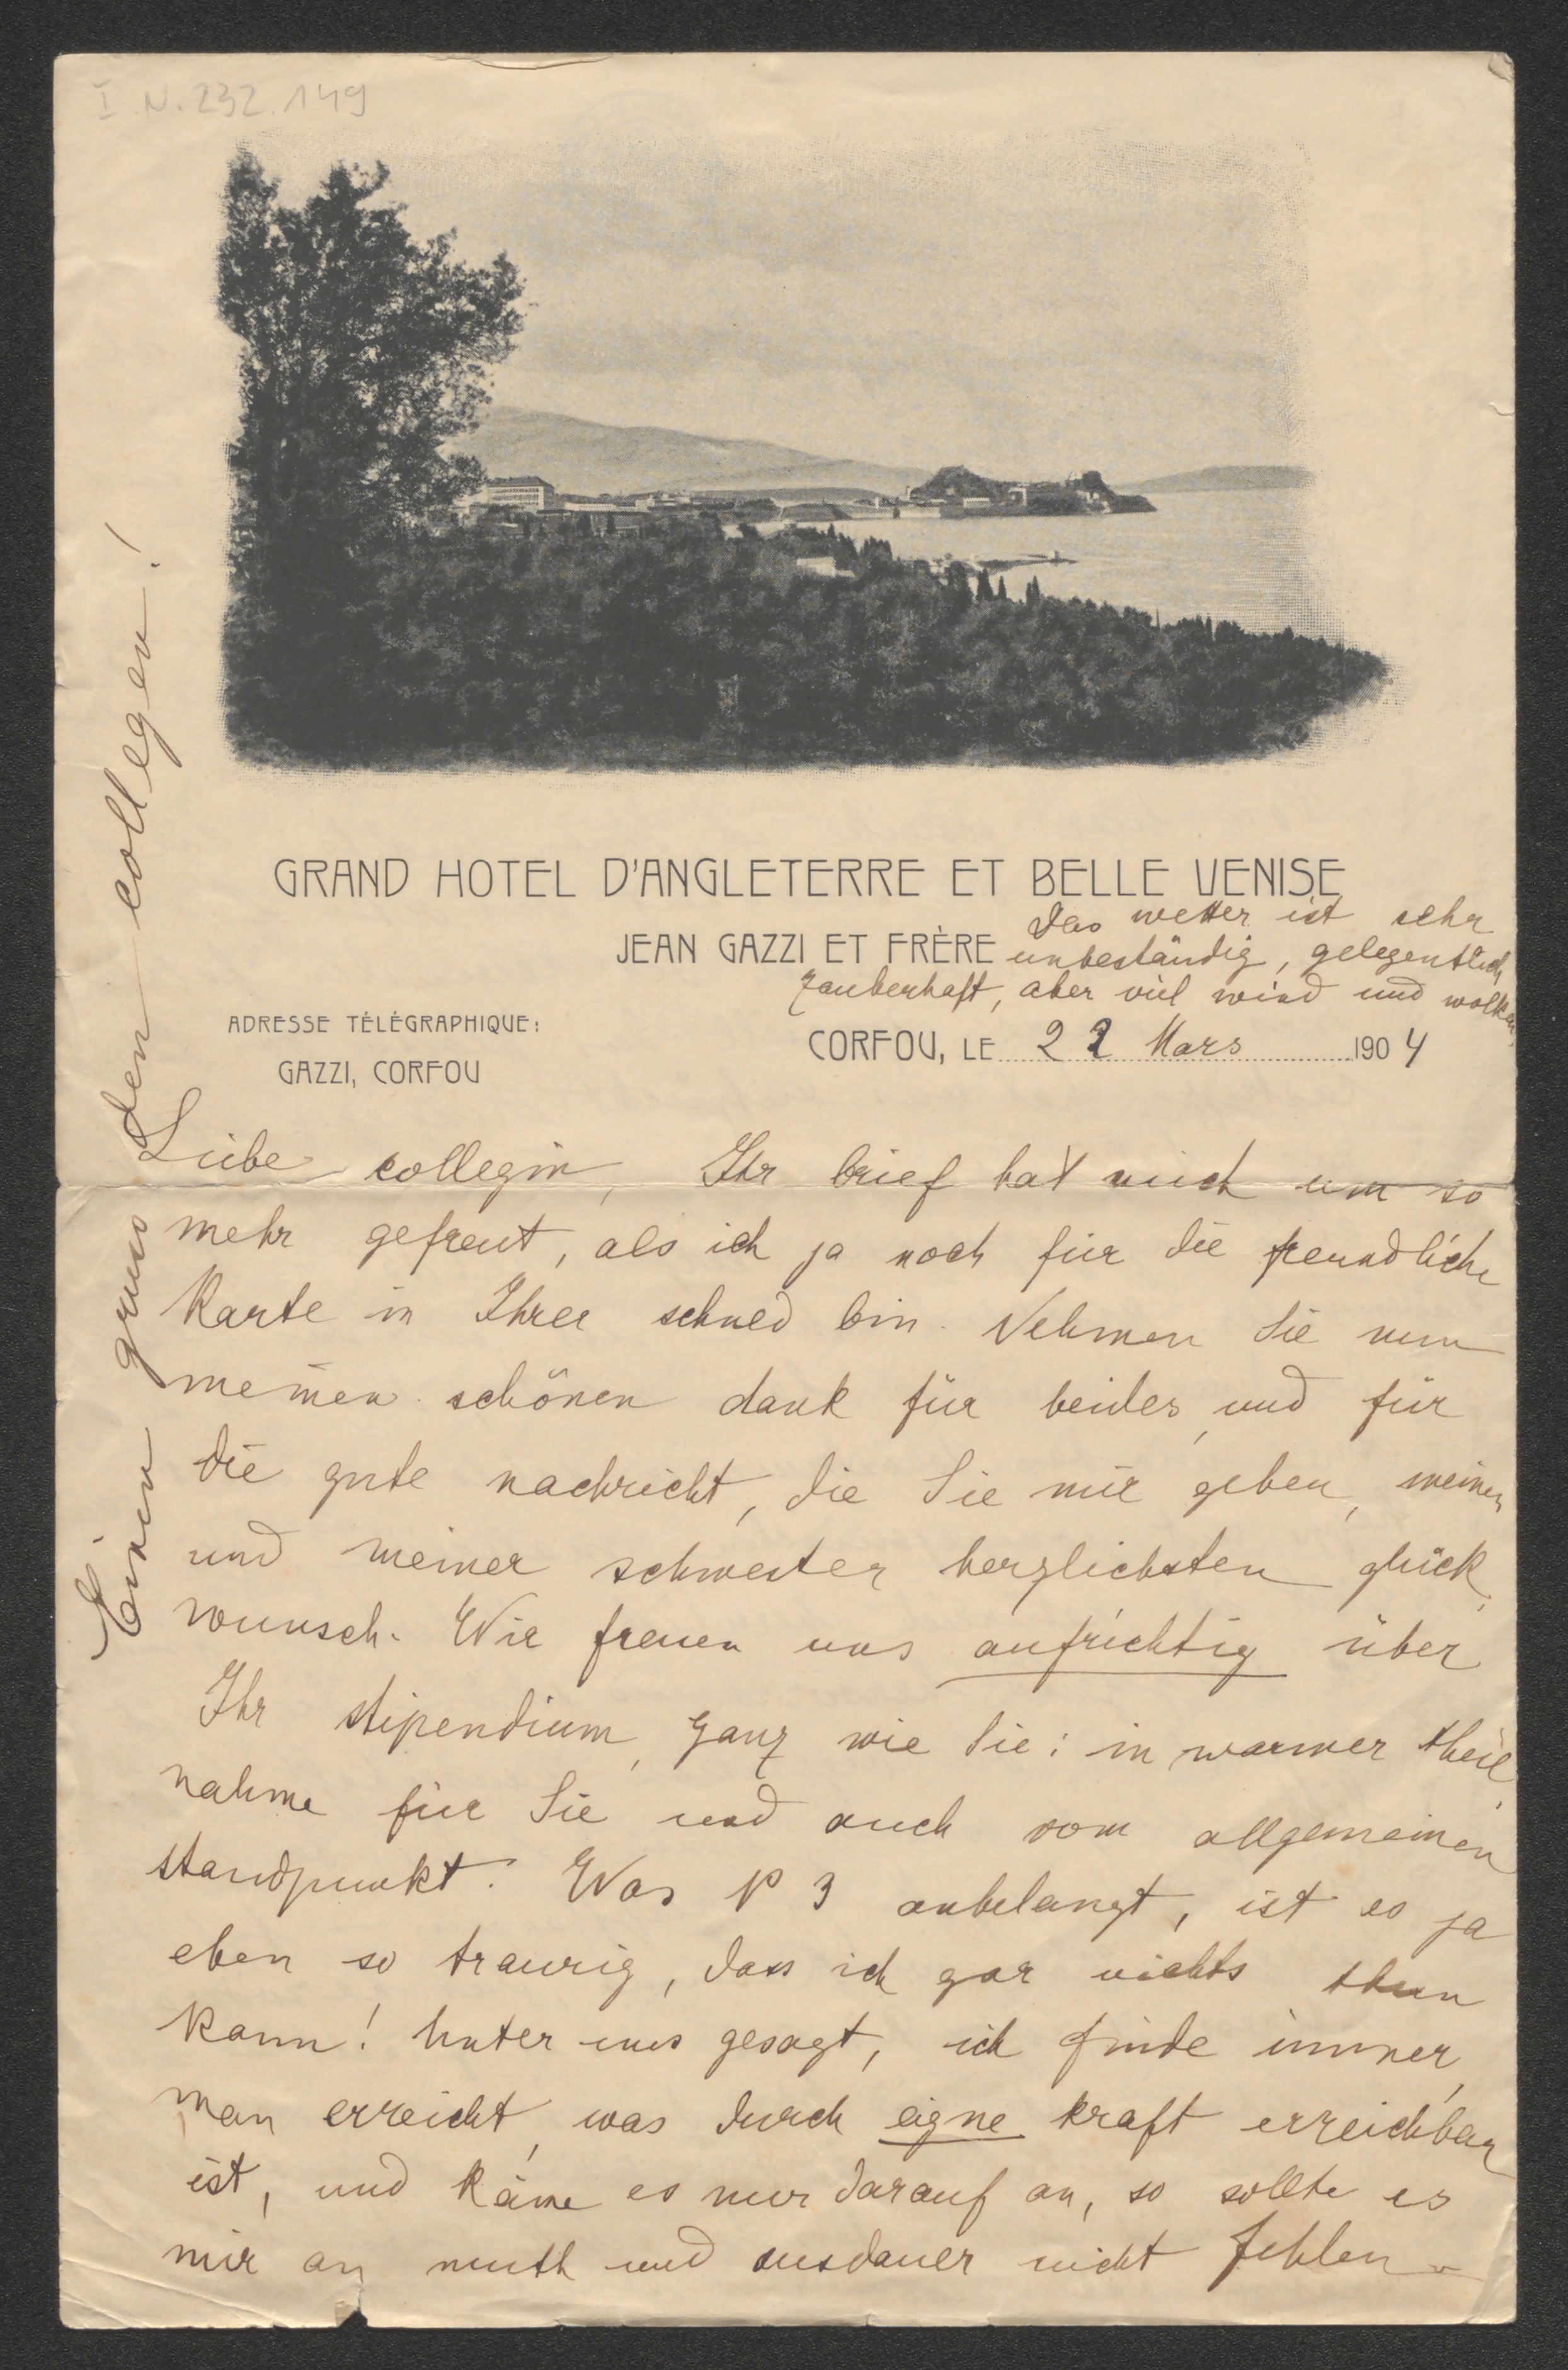 I N. 232.149
GRAND HOTEL D'ANGLETERRE ET BELLE VENISE
JEAN GAZZI ET FRÈRE
Das wetter ist sehr
unbeständig, gelegentlich
zauberhaft, aber viel wind und wolken
ADRESSE TÉLÉGRAPHIQUE:
GAZZI, CORFOU
CORFOU, LE 22 Mars 1904
Liebe collegin, Ihr brief hat mich um so
mehr gefreut, als ich ja noch für die freundliche
karte in Ihrer schuld bin. Nehmen Sie nun
meinen schönen dank für beides, und für
die gute nachricht, die Sie mir geben, meinen
und meiner schwester herzlichsten glück
wunsch. Wir freuen uns aufrichtig über
Ihr stipendium, ganz wie Sie: in warmer theil
nahme für Sie und auch vom allgemeinen
standpunkt. Was P 3 anbelangt, ist es ja
eben so traurig, dass ich gar nichts thun
kann! Unter uns gesagt, ich finde immer,
man erreicht, was durch eigne kraft erreichbar
ist, und käme es nur darauf an, so sollte es
mir an muth und ausdauer nicht fehlen
Einen gruss den collegen!